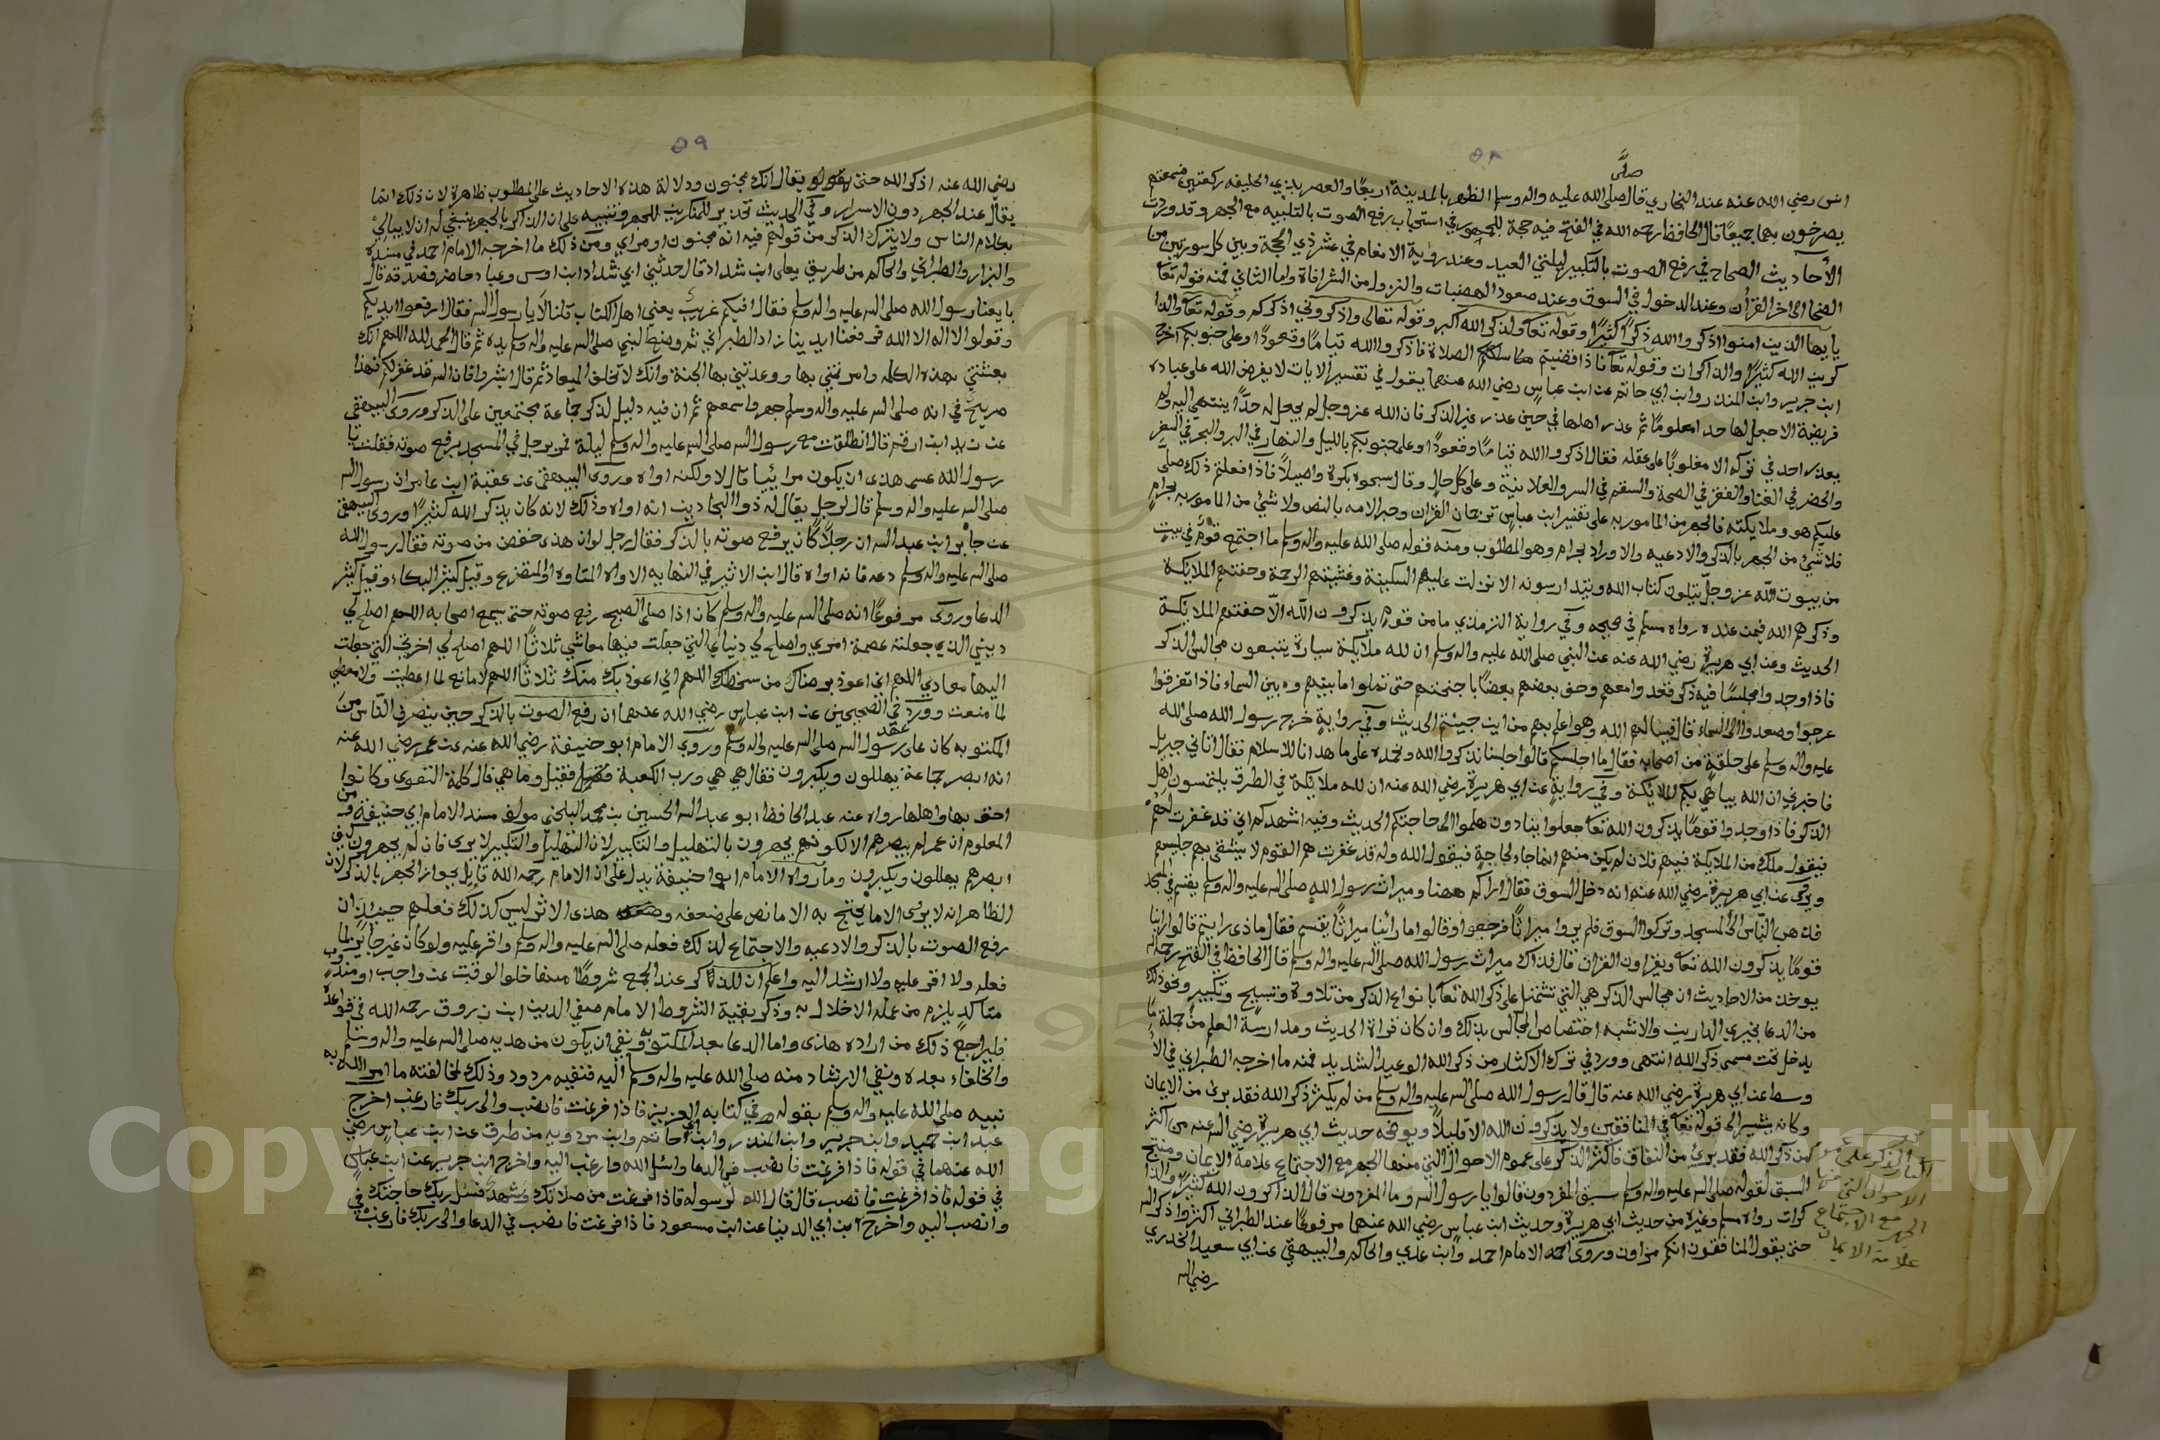 ٥٨
صلَّى
انس رضي الله عنه عند البخاري قال صلى الله عليه واله وسلم الظهر بالمدينة اربعًا والعصر بذي الحليفه ركعتين فسمعتهم
يصرخون بهما جميعًا قال الحافظ رحمه الله في الفتح فيه حجة للجمهور في استحباب رفع الصوت بالتلبيه مع الجهر وقد وردت
الأحاديث الصحاح في رفع الصوت بالتكبير ليلتي العيد وعند روية الانعام في عشر ذي الحجة وبين كل سورتين من
الضحا الى اخر القرأن وعند الدخول في السوق وعند صعود الهضبات والنزول من الشرافاة واما الثاني فمنه قوله تعا
يا يها الذين امنوا اذكروا الله ذكرًا كثيرًا وقوله تعا ولذكر الله اكبر وقوله تعالى واذكروني اذكركم وقوله تعا والذا
كرين الله كثيرًا والذاكرات وقوله تعا فاذا قضيتم الصلاة فاذكروا الله قيامًا وقعودًا وعلى جنوبكم اخرج
ابن جرير وابن المنذر وابن ابي حاتم عن ابن عباس رضي الله عنهما يقول في تفسير الايات لا يفرض الله على عباده
فريضة الا جعل لها حدا معلومًا ثم عذر اهلها في حين عذر غير الذكر فان الله عز وجل لم يجعل له حدًّا ينتهي اليه ولم
يعذر احد في تركه الا مغلوبًا على عقله فقال اذكروا الله قيامًا وقعودًا وعلى جنوبكم بالليل والنهار في البر والبحر في السفر
والحضر في الغنا والفقر في الصحة والسقم في السر والعلانية وعلى كل حال وقال سبحوه بكرة واصيلًا فاذا فعلتم ذلك صلى
عليكم هو وملايكته فالجهر من المامور به على تفسير ابن عباس ترجمان القرأن وحبر الامه بالنص ولا شئ من المامور به بحرام
فلا شئ من الجهر بالذكر والادعيه والاوراد بحرام وهو المطلوب ومنه قوله صلى الله عليه واله وسلم ما اجتمع قوم في بيت
من بيوت الله عز وجل يتلون كتاب الله ويتدارسونه الا نزلت عليهم السكينة وغشيتهم الرحمة وحفتهم الملايكة
وذكرهم الله فيمن عنده رواه مسلم في صحيحه وفي رواية الترمذي ما من قوم يذكرون الله الّا حفتهم الملايكة
الحديث وعن ابي هريرة رضي الله عنه عن النبي صلى الله عليه واله وسلم ان لله ملايكة سيارة يتبعون مجالس الذكر
فاذا وجدوا مجلسًا فيه ذكر قعدوا معهم وحف بعضهم بعضًا باجنحتهم حتى تملوا ما بينهم وبين السماء فاذا تفرقوا
عرجوا وصعدوا الى السماء قال فيسالهم الله وهو اعلم بهم من اين جيئتم الحديث وفي رواية خرج رسول الله صلى الله
عليه واله وسلم على حلقة من اصحابه فقال ما اجلسكم قالوا جلسنا نذكر الله ونحمده على ما هدانا للاسلام فقال اتاني جبريل
فاخبرني ان الله يباهي بكم الملايكة وفي رواية عن ابي هريرة رضي الله عنه ان لله ملايكة في الطرق يلتمسون اهل
الذكر فاذا وجدوا قومًا يذكرون الله تعا جعلوا ينادون هلموا الى حاجتكم الحديث وفيه اشهدكم اني قد غفرت لهم
فيقول ملك من الملايكة فيهم فلان لم يكن منهم انما جاء لحاجة فيقول الله وله قد غفرت هم القوم لا يشقى بهم جليسهم
ويروى عن ابي هريرة رضي الله عنه انه دخل السوق فقال اراكم ههنا وميراث رسول الله صلى الله عليه واله وسلم يقسم في المسجد
فذهب النّاس الى المسجد وتركوا السوق فلم يروا ميراثًا فرجعوا وقالوا ما رأينا ميراثًا يقسم فقال ماذا رايتم قالوا راينا
قومًا يذكرون الله تعا ويقراون القران قال فذاك ميراث رسول الله صلى الله عليه واله وسلم قال الحافظ في الفتح رحمه الله
يوخذ من الاحاديث ان مجالس الذكر هي التي تشتمل على ذكر الله تعا بانواع الذكر من تلاوة وتسبيح وتكبير ونحو ذلك
من الدعا بخيري الدارين والاشبه اختصاص المجالس بذلك وان كان قراة الحديث ومدارسة العلم من جملة ما
يدخل تحت مسمى ذكر الله انتهى وورد في ترك الاكثار من ذكر الله الوعيد الشديد فمنه ما اخرجه الطبراني في الا
وسط عن ابي هريرة رضي الله عنه قال قال رسول الله صلى الله عليه واله وسلم من لم يكثر ذكر الله فقد برئ من الايمان
وكانه يشير الى قوله تعا في المنافقين ولا يذكرون الله الا قليلًا ويوضحه حديث ابي هريرة رضي الله عنه من اكثر
من ذكر الله فقد برئ من النفاق فاكثر الذكر على عموم الاحوال التي منها الجهر مع الاجتماع علامة الايمان ومنتج
السبق لقوله صلى الله عليه واله وسلم سبق المفردون قالوا يا رسول الله وما المفردون قال الذاكرون الله كثيرًا والذا
كرات رواه مسلم وغيره من حديث ابي هريرة وحديث ابن عباس رضي الله عنهما مرفوعًا عند الطبراني اكثروا ذكر الله
حتى يقول المنافقون انكم مراون وروى احمد الامام احمد وابن عدي والحاكم والبيهقي عن ابي سعيد الخدري
رضي الله
الذكر على عموم
الاحوال التي منها
الجهر مع الاجتماع
علامة الايمان
٥٩
رضي الله عنه اذكر الله حتى يقال انك مجنون ودلالة هذه الاحاديث على المطلوب ظاهرة لان ذلك انما
يقال عند الجهر دون الاسرار وفي الحديث تحذير للمنكرين للجهر وتنبيه على ان الذاكر بالجهر ينبغي له ان لا يبالي
بكلام الناس ولا يترك الذكر من قولهم فيه انه مجنون او مراي ومن ذلك ما اخرجه الامام احمد في مسنده
والبزار والطبراني والحاكم من طريق يعلى ابن شداد قال حدثني ابي شداد ابن اوس وعباده حاضر فصدقه قال
بايعنا رسول الله صلى الله عليه واله وسلم فقال افيكم غريب يعني اهل الكتاب قلنا لا يا رسول الله فقال ارفعوا ايديكم
وقولوا لا اله الا الله فرفعنا ايدينا زاد الطبراني ثم وضع النبي صلى الله عليه واله وسلم يده ثم قال الحمد لله اللهم انك
بعثتني بهذه الكلمه وامرتني بها ووعدتني بها الجنة وانك لا تخلف الميعاد ثم قال ابشروا فان الله قد غفر لكم فهذا
صريح في انه صلى الله عليه واله وسلم جهر واسمعهم ثم ان فيه دليل لذكر جماعة مجتمعين على الذكر وروى البيهقي
عن زيد ابن ارقم قال انطلقت مع رسول الله صلى الله عليه واله وسلم ليلة فمر برجل في المسجد يرفع صوته فقلت يا
رسول الله عسى هذا ان يكون مرائيًا قال لا ولكنه اواه وروى البيهقي عن عقبة ابن عامر ان رسول الله
صلى الله عليه واله وسلم قال لرجل يقال له ذو البجادين انه اواه وذلك لانه كان يذكر الله كثيرًا وروى البيهقي
عن جابر ابن عبد الله ان رجلًا كان يرفع صوته بالذكر فقال رجل لو ان هذا خفض من صوته فقال رسول الله
صلى الله عليه واله وسلم دعه فانه اواه قال ابن الاثير في النهايه الاواه المتاوه المتضرع وقيل كثير البكاء وقيل كثير
الدعا وروى مرفوعًا انه صلى الله عليه واله وسلم كان اذا صلى الصبح رفع صوته حتى يسمع اصحابه اللهم اصلح لي
ديني الذي جعلته عصمة امري واصلح لي دنياي التي جعلت فيها معاشي ثلاثًا اللهم اصلح لي اخرتي التي جعلت
اليها معادي اللهم اني اعوذ برضاك من سخطك اللهم اني اعوذ بك منك ثلاثًا اللهم لا مانع لما اعطيت ولا معطي
لما منعت وورد في الصحيحين عن ابن عباس رضي الله عنهما ان رفع الصوت بالذكر حين ينصرف النّاس من
المكتوبه كان على عهد رسول الله صلى الله عليه واله وسلم وروى الامام ابو حنيفة رضي الله عنه عن عمر رضي الله عنه
انه ابصر جماعة يهللون ويكبرون فقال هي هي ورب الكعبة فقيل وما هي قال كلمة التقوى وكانوا
احق بها واهلها رواه عنه عبد الحافظ ابو عبد الله الحسين بن محمد البلخي مولف مسند الامام ابي حنيفة ومن
المعلوم ان عمر لم يبصرهم الا لكونهم يجهرون بالتهليل والتكبير لان التهليل والتكبير لا يرى فان لم يجهروا كيف
ابصرهم يهللون ويكبرون وما رواه الامام ابو حنيفة يدل على ان الامام رحمه الله قايل بجواز الجهر بالذكر لان
الظاهر انه لا يروى الا ما يحتج به الا ما نص على ضعفه وهذا الاثر ليس كذلك فعلم حينئذ ان
رفع الصوت بالذكر والادعيه والاجتماع لذلك فعله صلى الله عليه واله وسلم واقر عليه ولو كان غير جائز لما
فعله ولا اقر عليه ولا ارشد اليه واعلم ان للذاكر عند الجمع شروطًا منها خلو الوقت عن واجب او مندوب
متاكد يلزم من عمله الاخلال به وذكر بقية الشروط الامام صفي الدين ابن زروق رحمه الله في قواعده
فليراجع ذلك من اراده هذا واما الدعا بعد المكتوبة ونفي ان يكون من هديه صلى الله عليه واله وسلم
والخلفاء بعده ونفي الارشاد منه صلى الله عليه واله وسلم اليه فنفيه مردود وذلك لمخالفته ما امر الله به
نبيه صلى الله عليه واله وسلم بقوله في كتابه العزيز فاذا فرغت فانصب والى ربك فارغب اخرج
عبد ابن حميد وابن جرير وابن المنذر وابن ابي حاتم وابن مردويه من طرق عن ابن عباس رضي
الله عنهما في قوله فاذا فرغت فانصب في الدعا واسئل الله وارغب اليه واخرج ابن جرير عن ابن عباس
في قوله فاذا فرغت فانصب قال قال الله لرسوله فاذا فرغت من صلاتك وتشهدت فسئل ربك حاجتك في
وانصب اليه واخرج ابن ابي الدنيا عن ابن مسعود فاذا فرغت فانصب في الدعا والى ربك فارغب في
Copy
King
University